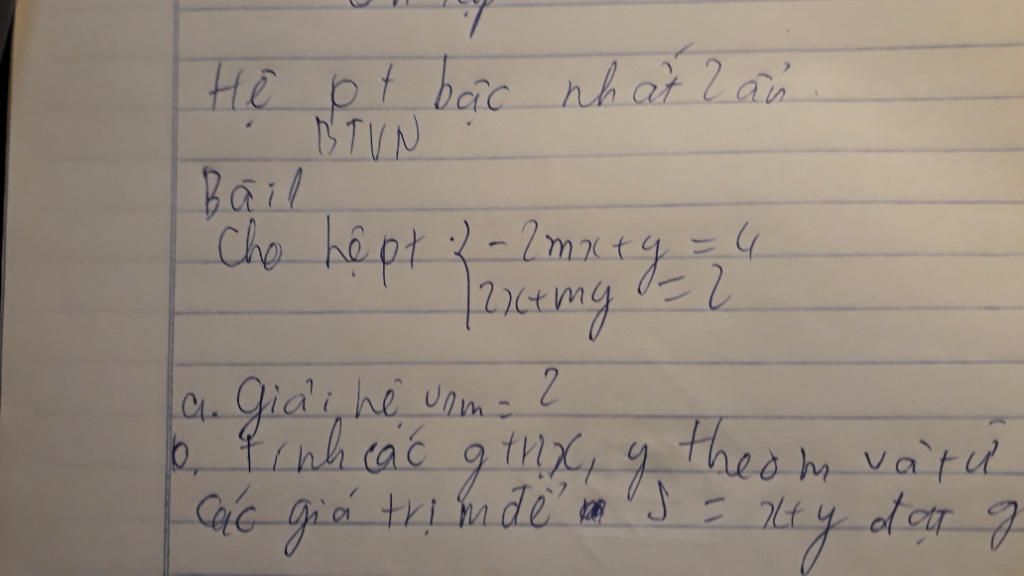 Hệ pt bậc nhất 2 ẩn.
BTVN
Bài 1
Cho hệ pt : { -2mx + y = 4
2x + my = 2
a. Giải hệ với m = 2
b. Tính các g trị x, y theo m và từ
các giá trị m để S = x + y đạt g